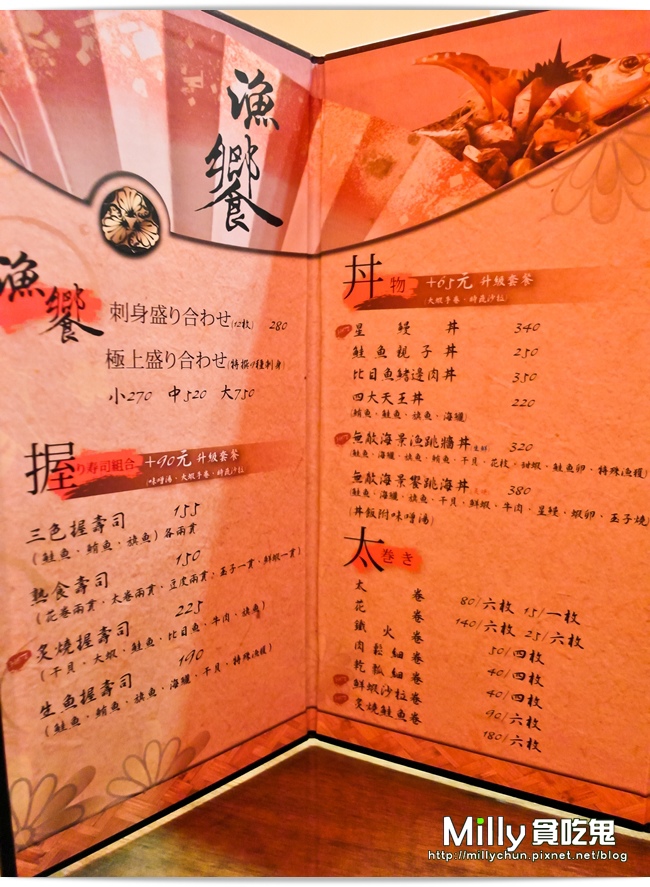 漁饗
漁饗
刺身盛り合わせ(12枚) 280
極上盛り合わせ(特撰 種刺身)
小270 中520 大750
握り寿司組合 +90元 升級套餐
(味噌湯、大蝦手卷、時蔬沙拉)
三色握壽司 155
(鮭魚、鮪魚、旗魚)各兩貫
熟食壽司 150
(花卷兩貫、太卷兩貫、豆皮兩貫、玉子一貫、鮮蝦一貫)
炙燒握壽司 225
(干貝、大蝦、鮭魚、比目魚、牛肉、旗魚)
生魚握壽司 190
(鮭魚、鮪魚、旗魚、海鱺、干貝、特殊漁獲)
丼物 +65元 升級套餐
(大蝦手卷、時蔬沙拉)
星鰻丼 340
鮭魚親子丼 250
比目魚鰭邊肉丼 350
四大天王丼 220
(鮪魚、鮭魚、旗魚、海鱺)
無敵海景漁跳牆丼 320
(鮭魚、海鱺、旗魚、鮪魚、干貝、花枝、甜蝦、鮭魚卵、特殊漁獲)
無敵海景饗跳海丼 380
(鮭魚、海鱺、旗魚、干貝、鮮蝦、牛肉、星鰻、蝦卵、玉子燒)
(丼飯附味噌湯)
太巻き
太卷 80/六枚 15/一枚
花卷 140/六枚 25/六枚
鐵火卷 50/四枚
肉鬆細卷 40/四枚
乾瓢細卷 40/四枚
鮮蝦沙拉卷 90/六枚
炙燒鮭魚卷 180/六枚
Milly 貪吃鬼
http://millychun.pixnet.net/blog